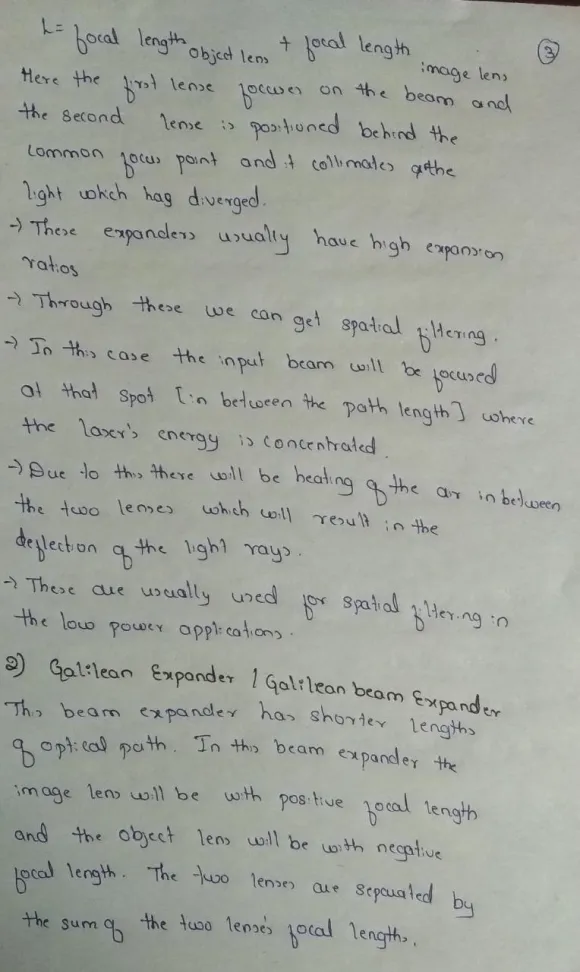 L= focal length object lens + focal length image lens
③
Here the first lense focuses on the beam and
the second lense is positioned behind the
common focus point and it collimates the
light which has diverged.
→ These expanders usually have high expansion
ratios
→ Through these we can get spatial filtering.
→ In this case the input beam will be focused
at that spot [in between the path length] where
the laser's energy is concentrated.
→ Due to this there will be heating of the air in between
the two lenses which will result in the
deflection of the light rays.
→ These are usually used for spatial filtering in
the low power applications.
2) Galilean Expander / Galilean beam Expander
This beam expander has shorter lengths
of optical path. In this beam expander the
image lens will be with positive focal length
and the object lens will be with negative
focal length. The two lenses are separated by
the sum of the two lense's focal lengths.